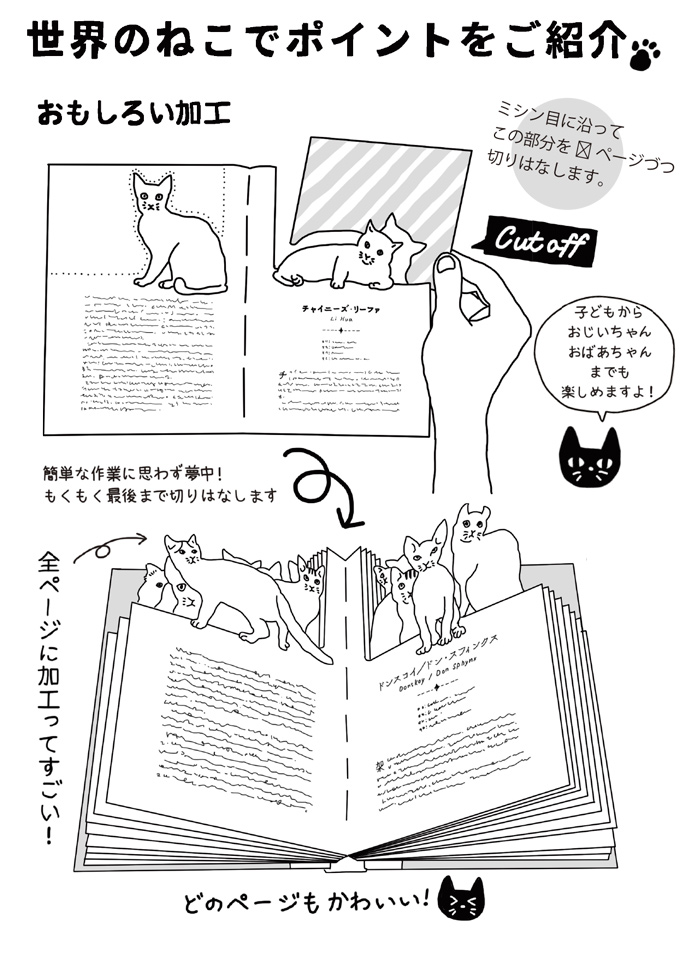 世界のねこでポイントをご紹介
おもしろい加工
ミシン目に沿って
この部分を ページづつ
切りはなします。
Cut off
チャイニーズ・リーファ
Li Hua
チ
子どもから
おじいちゃん
おばあちゃん
までも
楽しめますよ!
簡単な作業に思わず夢中!
もくもく最後まで切りはなします
全ページに加工ってすごい!
ドンスコイ/ドン・スフィンクス
Donskoy / Don Sphynx
どのページもかわいい!